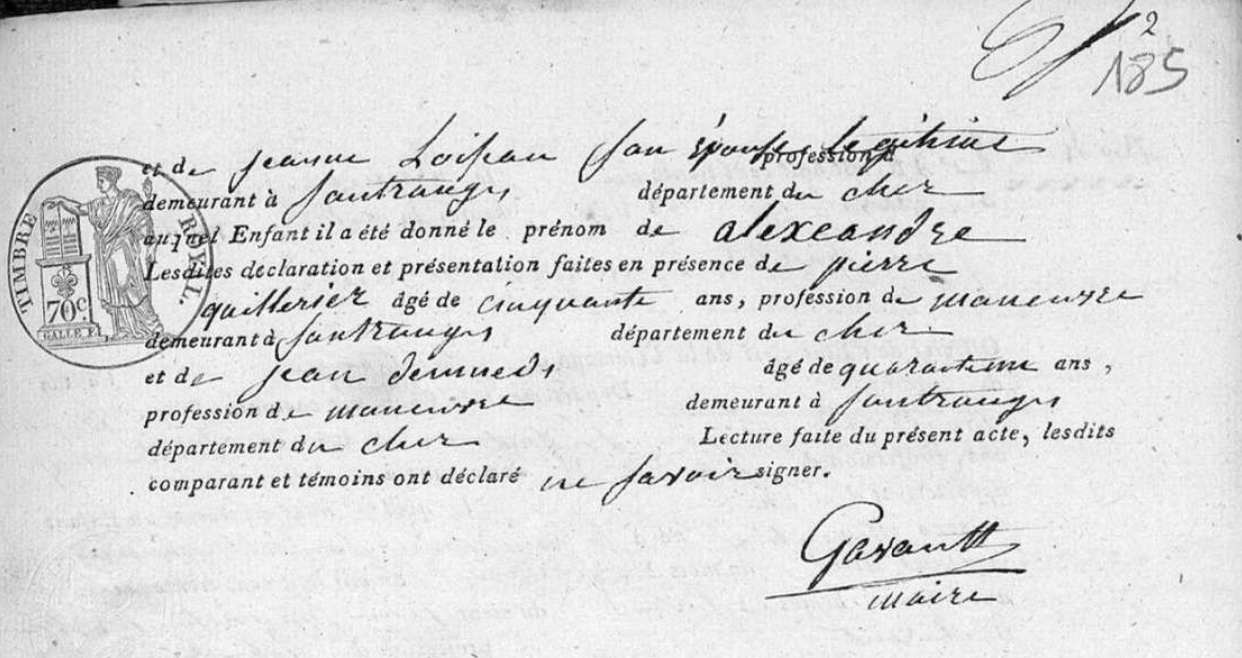 2
185
et de jeanne Loiseau son épouse legitime profession d
demeurant à santranges département du cher
auquel Enfant il a été donné le prénom de alexeandre
Lesdites déclaration et présentation faites en présence de pierre
quillerier âgé de cinquante ans, profession de maneuvre
demeurant à santranges département du cher
et de jean âgé de quarante ans,
profession de maneuvre demeurant à santranges
département du cher Lecture faite du présent acte, lesdits
comparant et témoins ont déclaré ne savoir signer.
maire
TIMBRE ROYAL.
70c